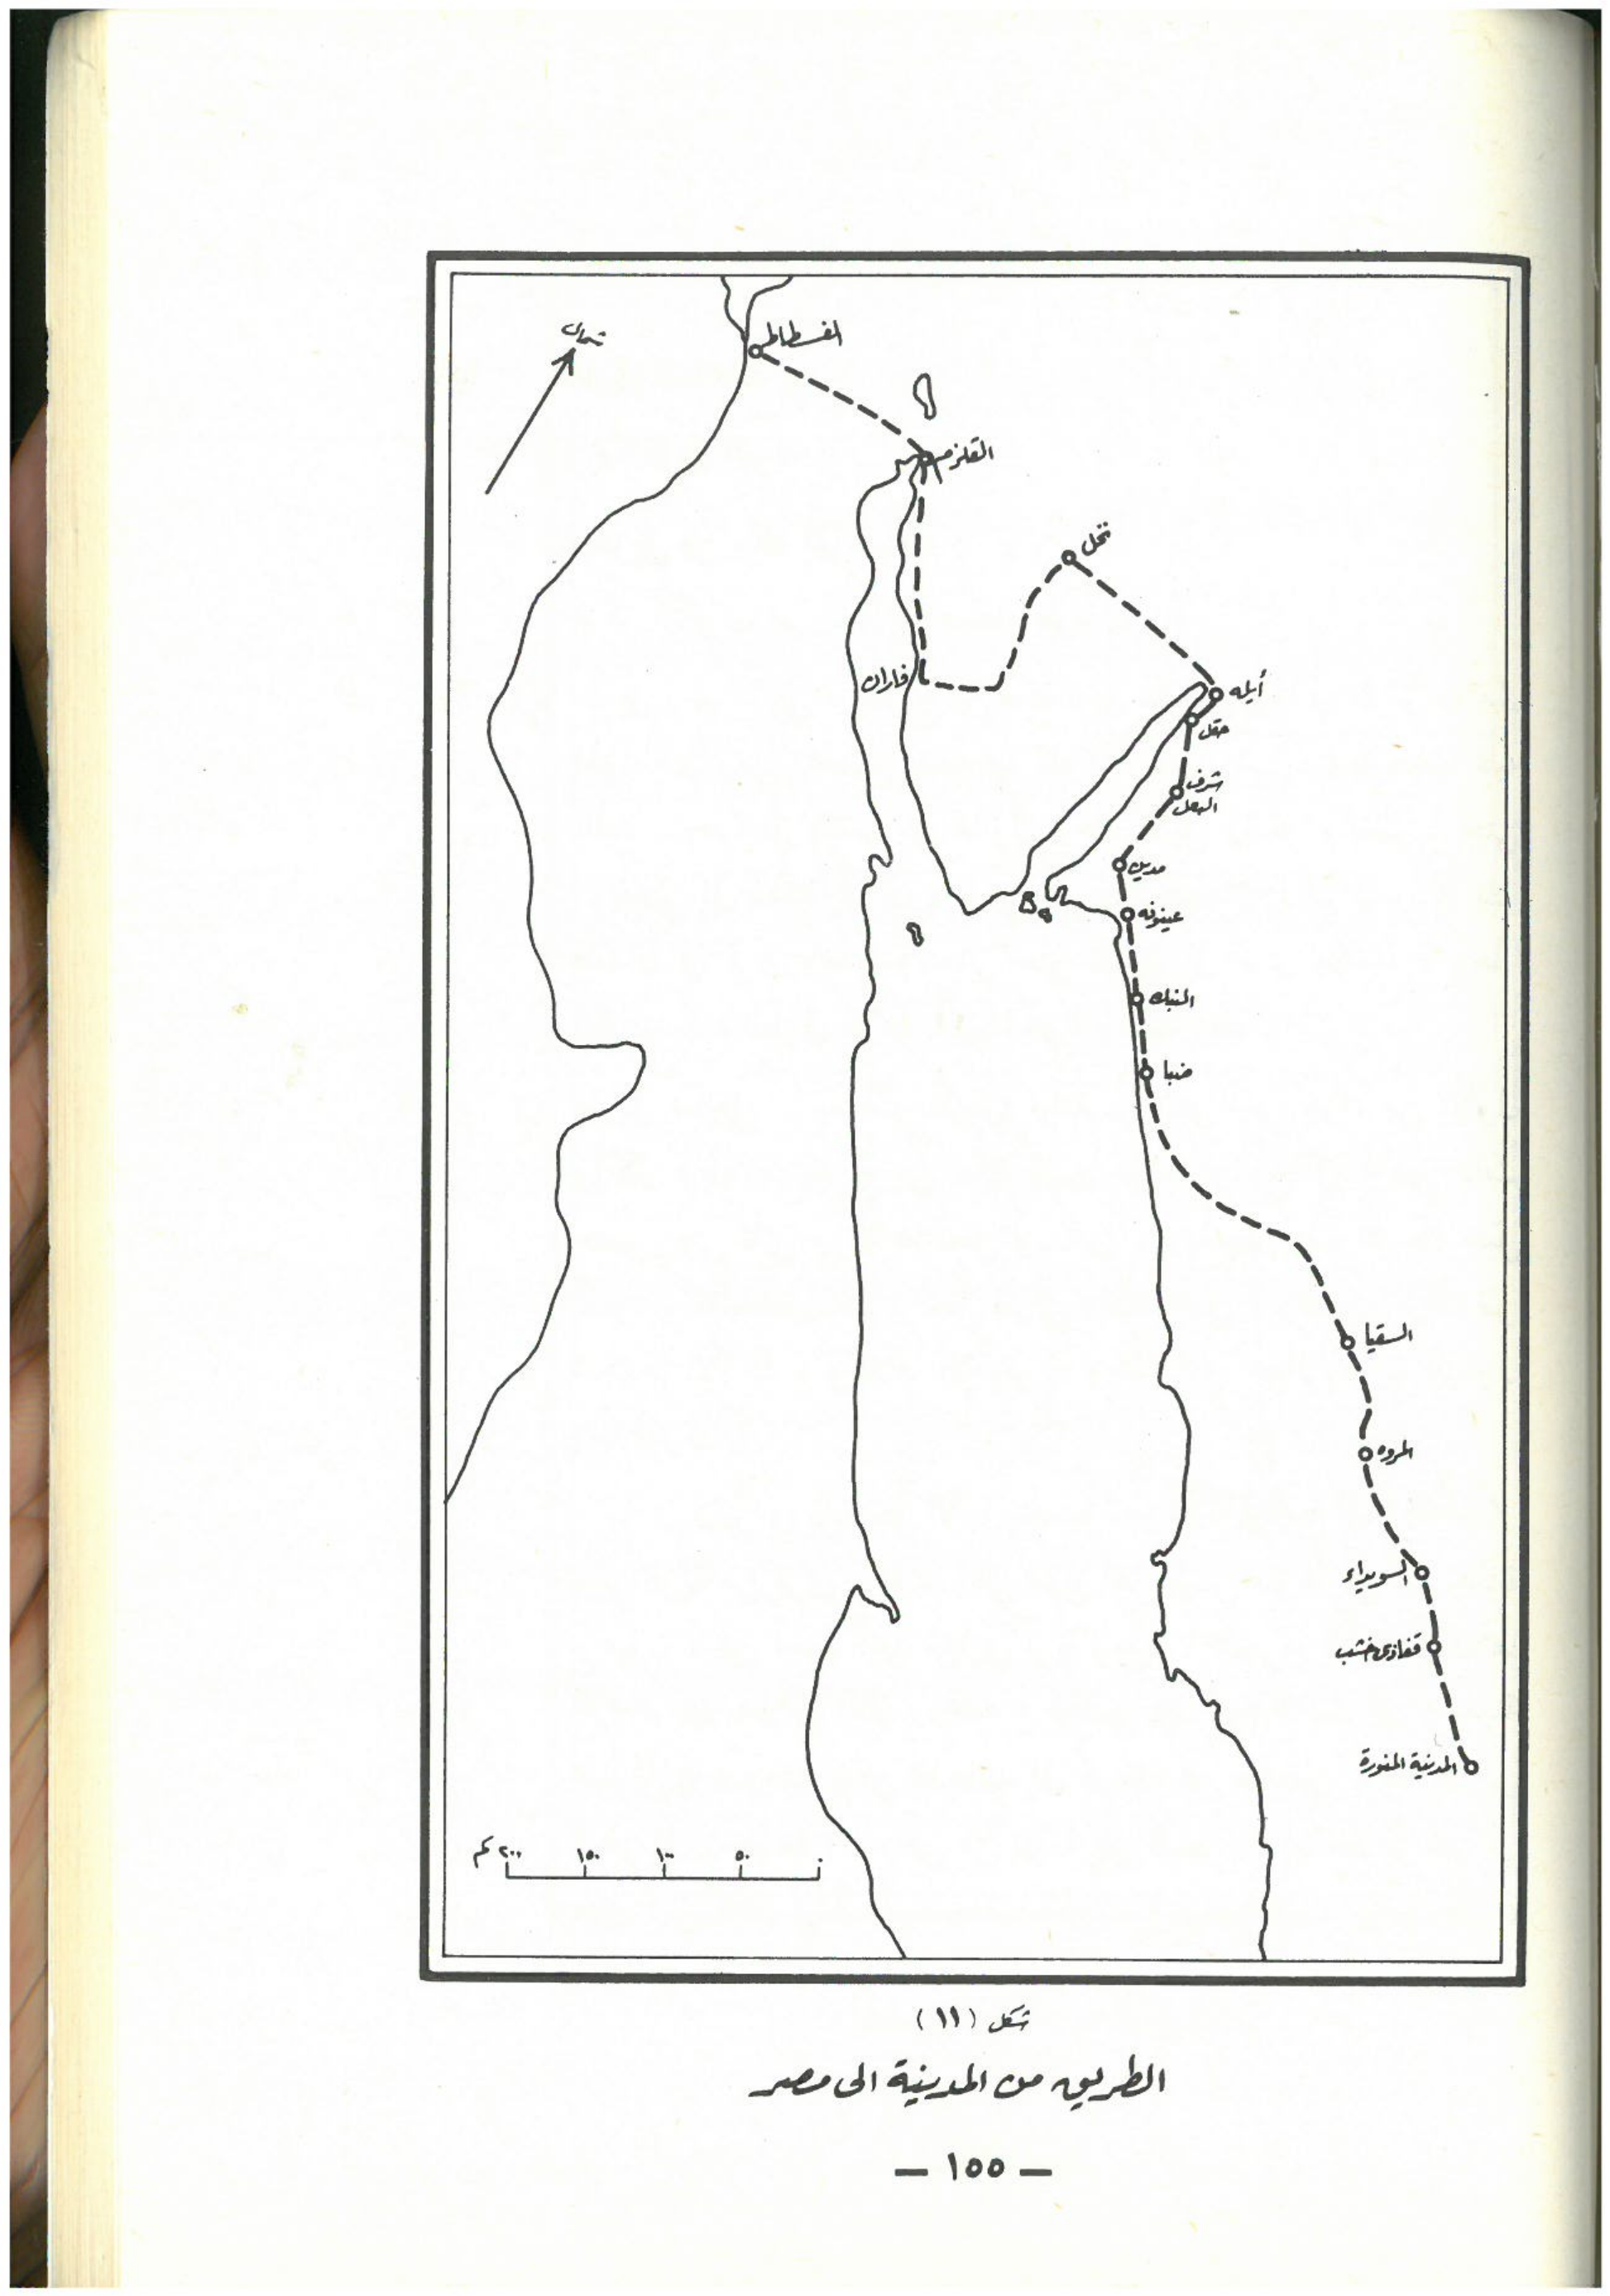 شمال
الفسطاط
القلزم
نخل
فاران
أيله
حقل
شرف
البعل
مدين
عينونه
النبك
ضبا
السقيا
المروه
السويداء
المدينة المنورة
٢٠٠ كم ١٥٠ ١٠٠ ٥٠ ٠
شكل (١١)
الطريق من المدينة الى مصر
— ١٥٥ —